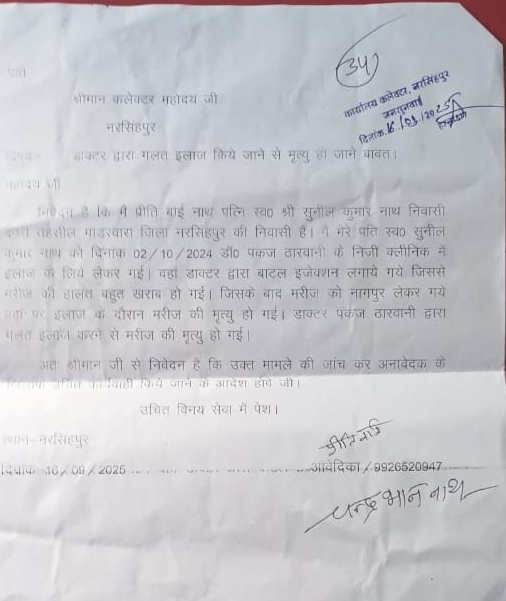 34
कार्यालय कलेक्टर, नरसिंहपुर
जनसुनवाई
दिनांक 16/09/2025
प्रति
श्रीमान कलेक्टर महोदय जी
नरसिहपुर
विषय- डाक्टर द्वारा गलत इलाज किये जाने से मृत्यु हो जाने बावत।
महोदय जी
निवेदन है कि मै प्रीति बाई नाथ पत्नि स्व० श्री सुनील कुमार नाथ निवासी
तहसील गाडरवारा जिला नरसिंहपुर की निवासी है। मै मेरे पति स्व० सुनील
कुमार नाथ को दिनांक 02/10/2024 डॉ० पकज ठारवानी के निजी क्लीनिक में
इलाज के लिये लेकर गई। वहा डाक्टर द्वारा बाटल इजेक्शन लगाये गये जिससे
मरीज की हालत बहुत खराब हो गई। जिसके बाद मरीज को नागपुर लेकर गये
वहा पर इलाज के दौरान मरीज की मृत्यु हो गई। डाक्टर पकज ठारवानी द्वारा
गलत इलाज करने से मरीज की मृत्यु हो गई।
अत श्रीमान जी से निवेदन है कि उक्त मामले की जांच कर अनावेदक के
खिलाफ उचित कार्यवाही किये जाने के आदेश होवे जी।
उचित विनय सेवा में पेश।
स्थान-नरसिहपुर
प्रीति बाई
दिनाक 16/09/2025 आवेदिका/9926520947
चन्द्रभान नाथ